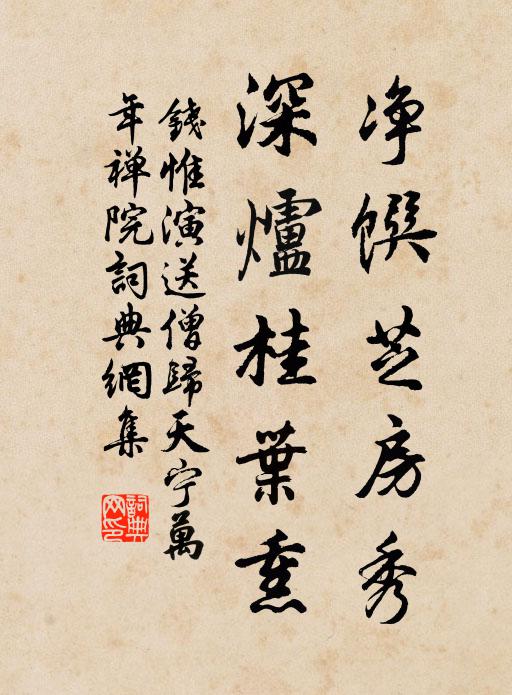 净馔芝房秀
深爐桂葉熏
錢惟演送僧歸天宁萬
年禅院詞典網集
詞典
网印